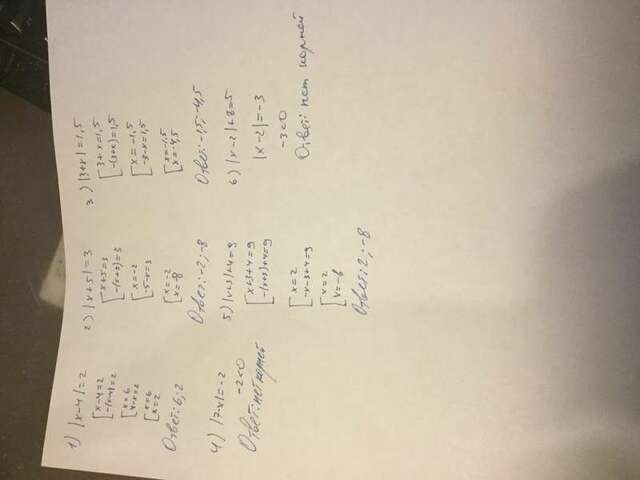 1) |x-4|=2
[x-4=2
-(x-4)=2
[x=6
4-x=2
[x=6
x=2
Ответ: 6; 2
2) |x+5|=3
[x+5=3
-(x+5)=3
[x=-2
-5-x=3
[x=-2
x=-8
Ответ: -2; -8
3) |3+x|=1,5
[3+x=1,5
-(3+x)=1,5
[x=-1,5
-3-x=1,5
[x=-1,5
x=-4,5
Ответ: -1,5; -4,5
4) |7-x|=-2
-2<0
Ответ: нет корней
5) |x+3|+4=9
[x+3+4=9
-(x+3)+4=9
[x=2
-x-3+4=9
[x=2
x=-8
Ответ: 2; -8
6) |x-2|+8=5
|x-2|=-3
-3<0
Ответ: нет корней